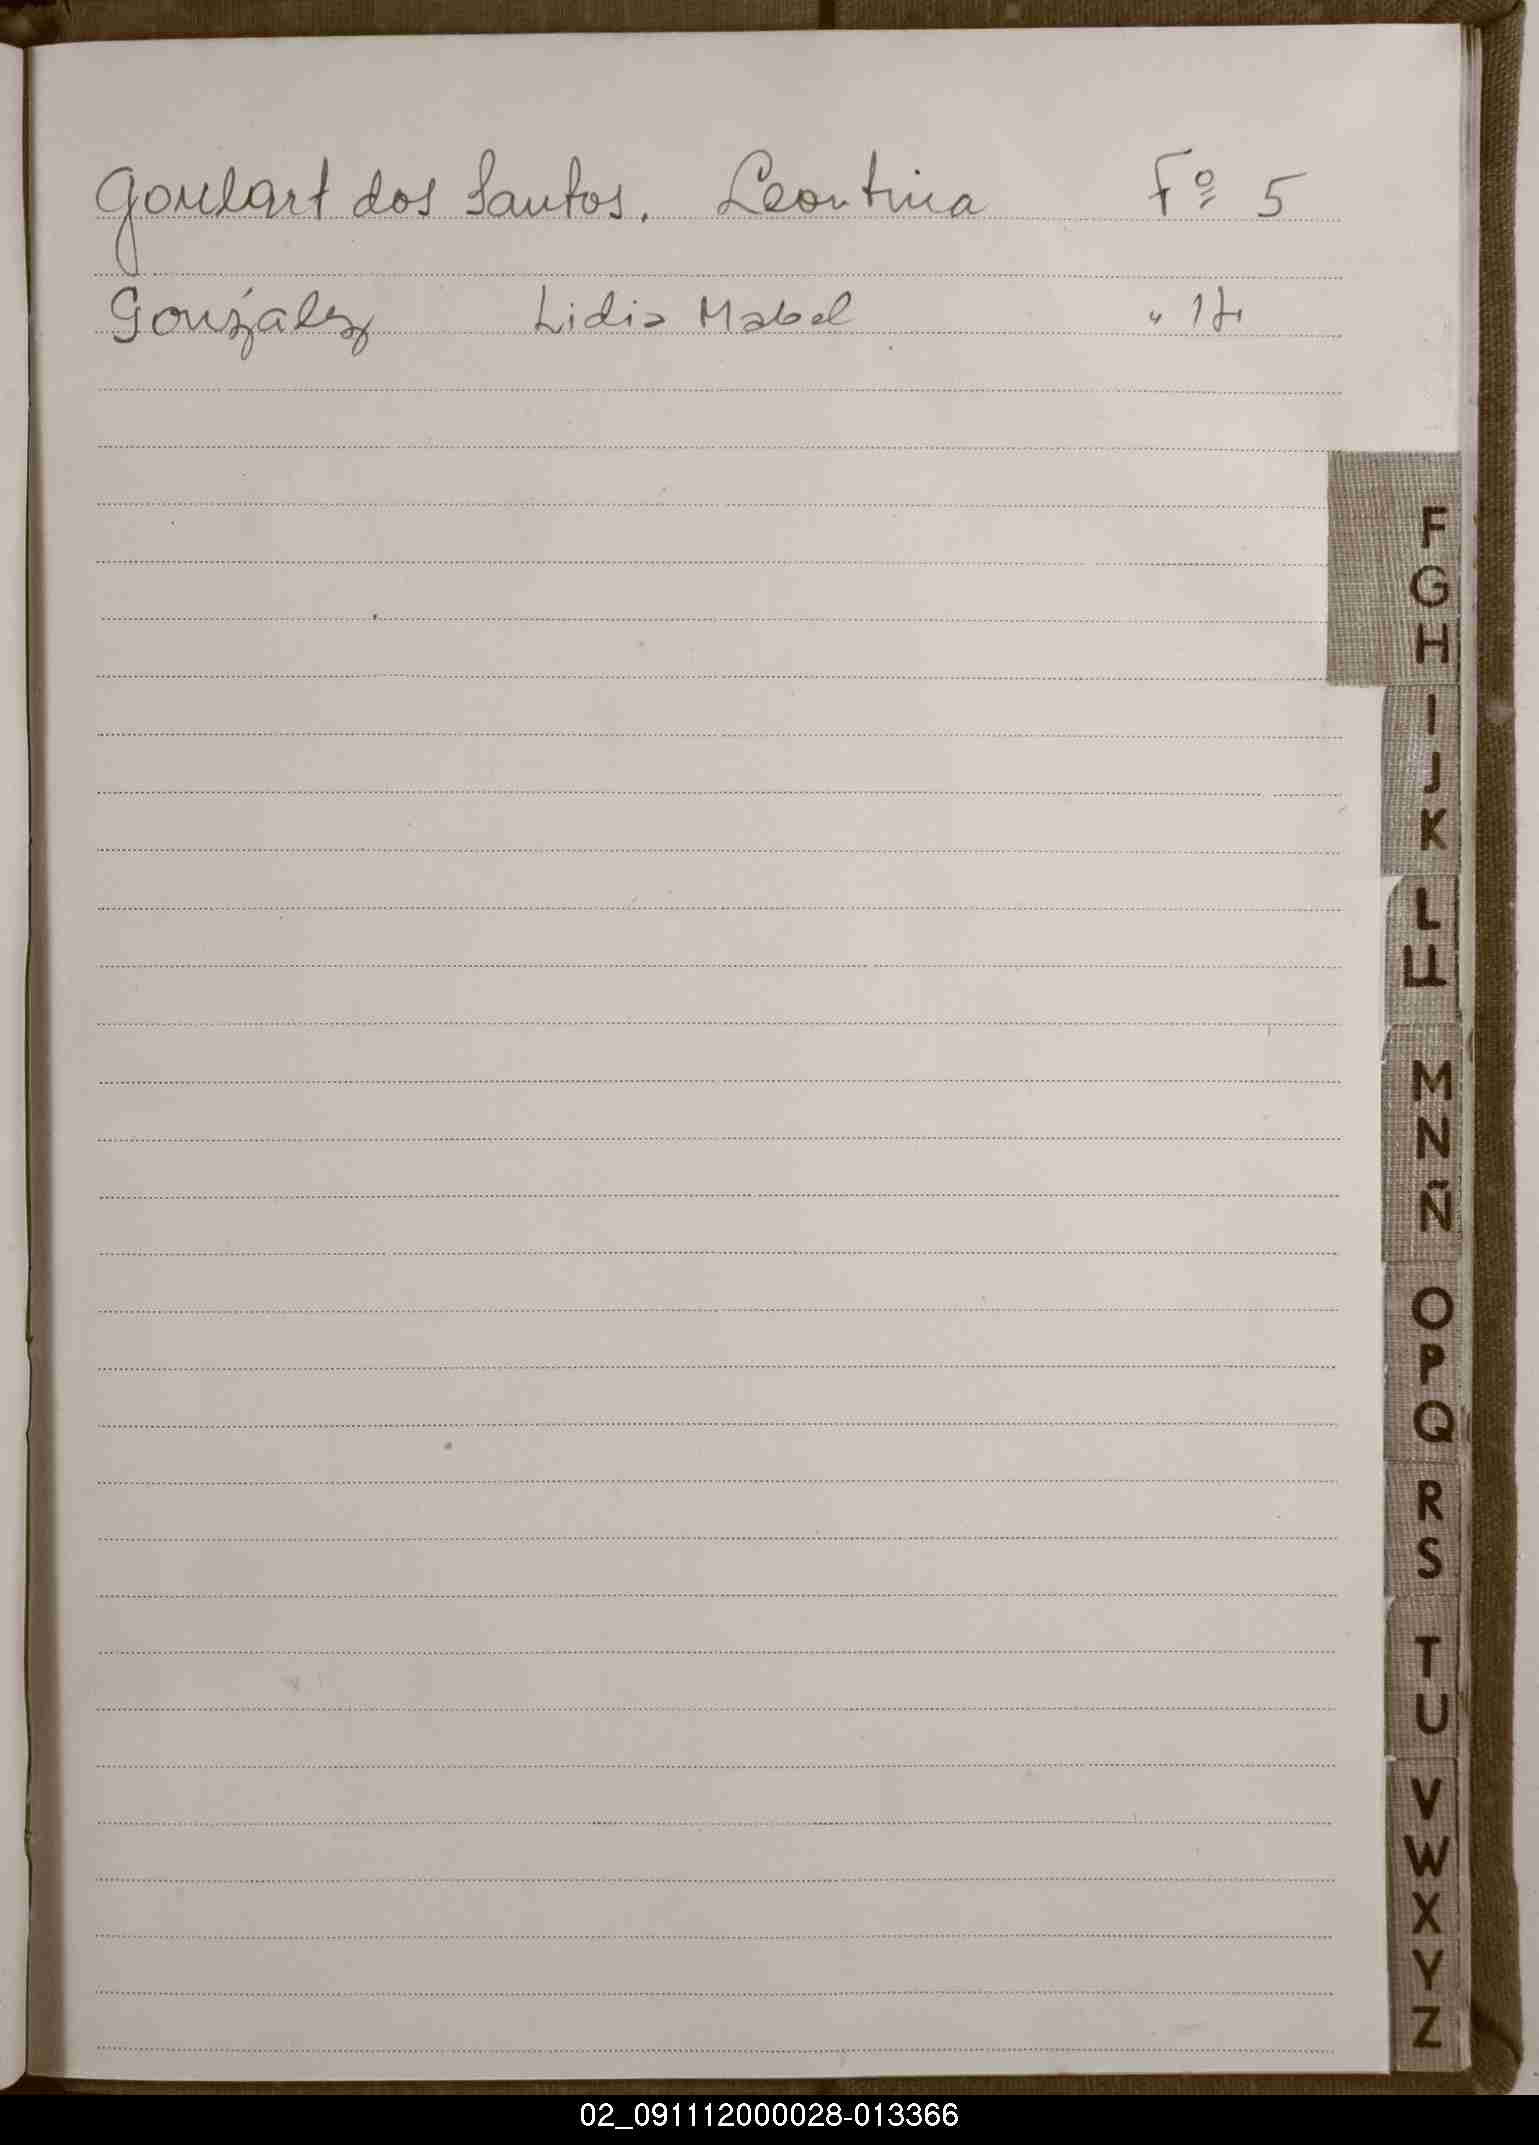 Goulart dos Santos. Leontina Fº 5
González Lidia Mabel " 17
F
G
H
I
J
K
L
LL
M
N
Ñ
O
P
Q
R
S
T
U
V
W
X
Y
Z
02_091112000028-013366